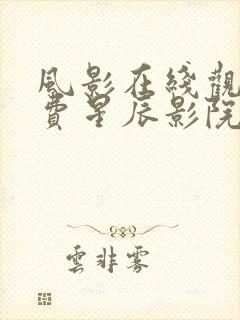 風影在綫觀
費星辰影院
雲非雾